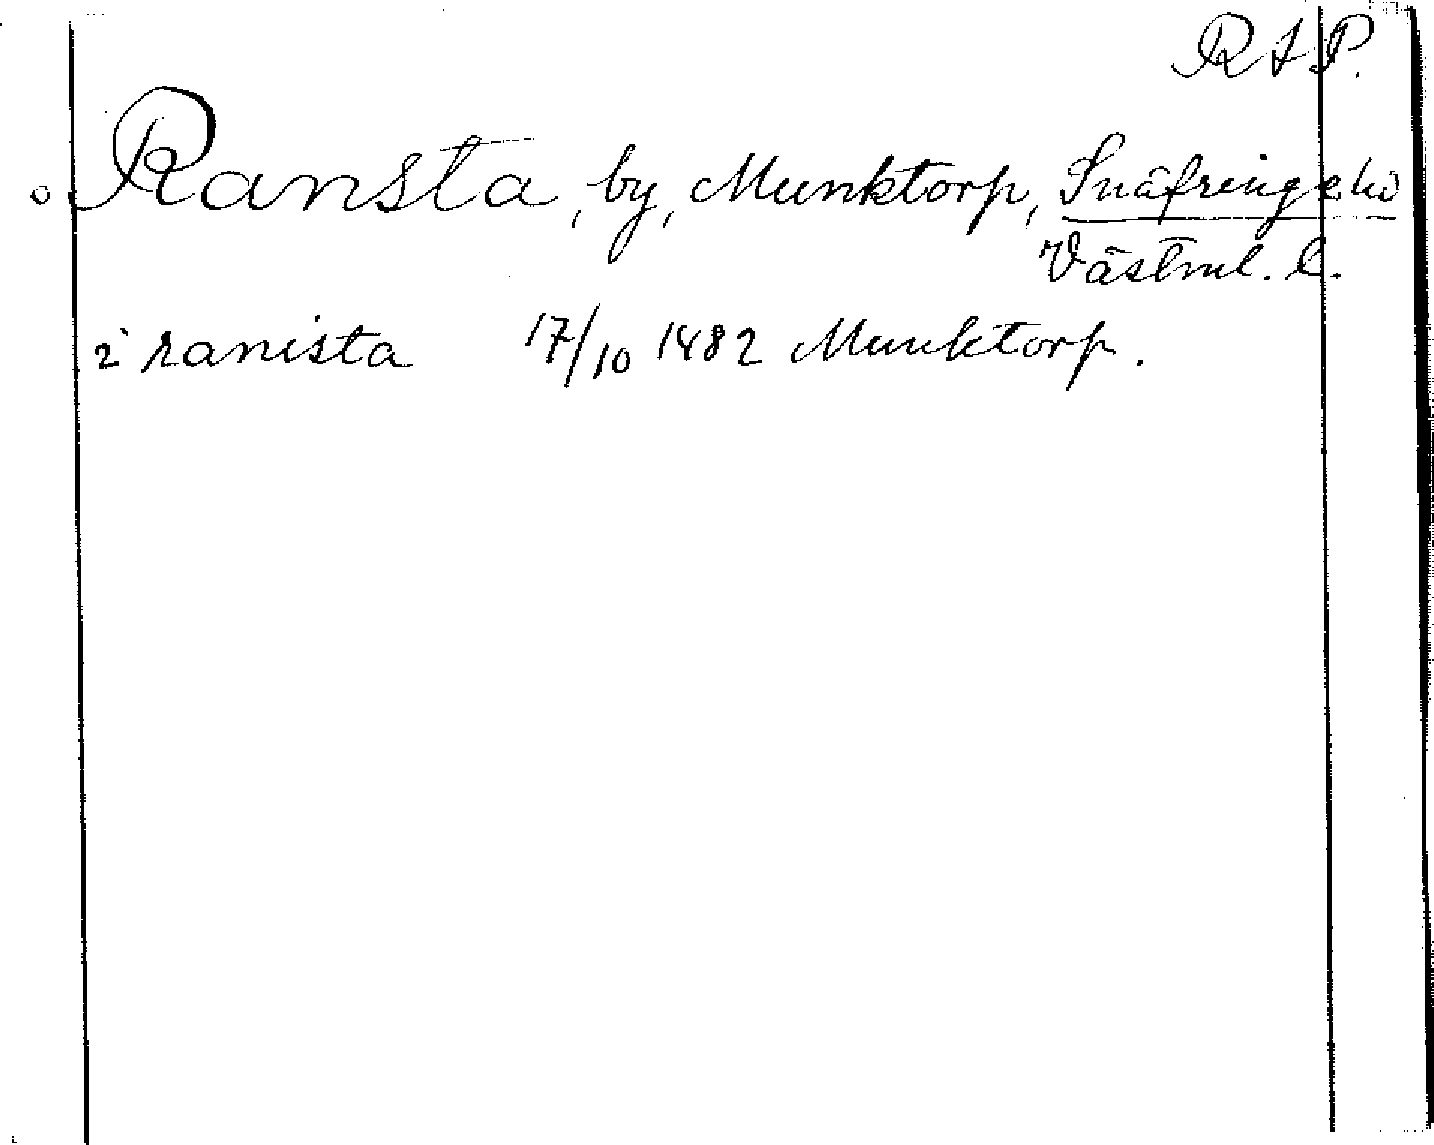 RAP.
Ransta, by, Munktorp, Snäfringe hd
Västml. l.
i ranista 17/10 1482 Munktorp.